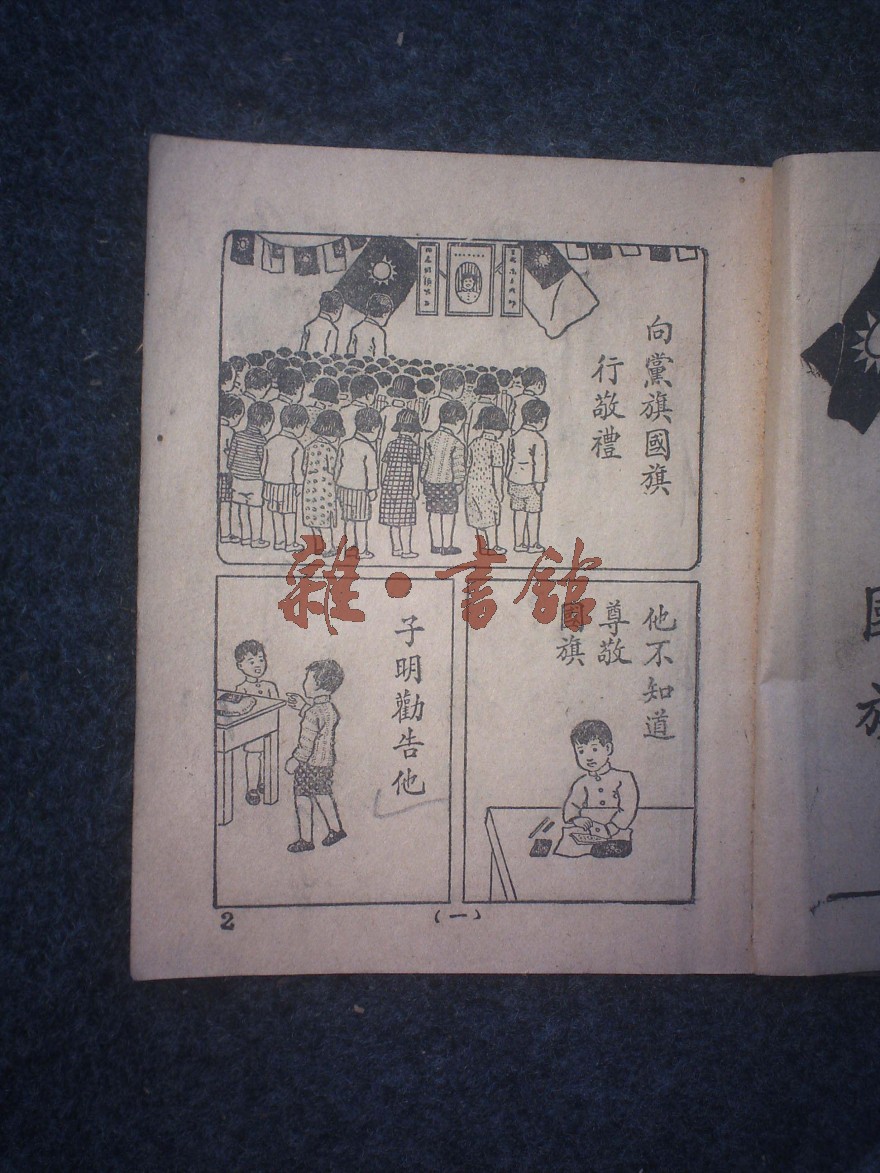 向黨旗國旗
行敬禮
他不知道
尊敬
國旗
子明勸告他
2
(一)
國
雜·書館